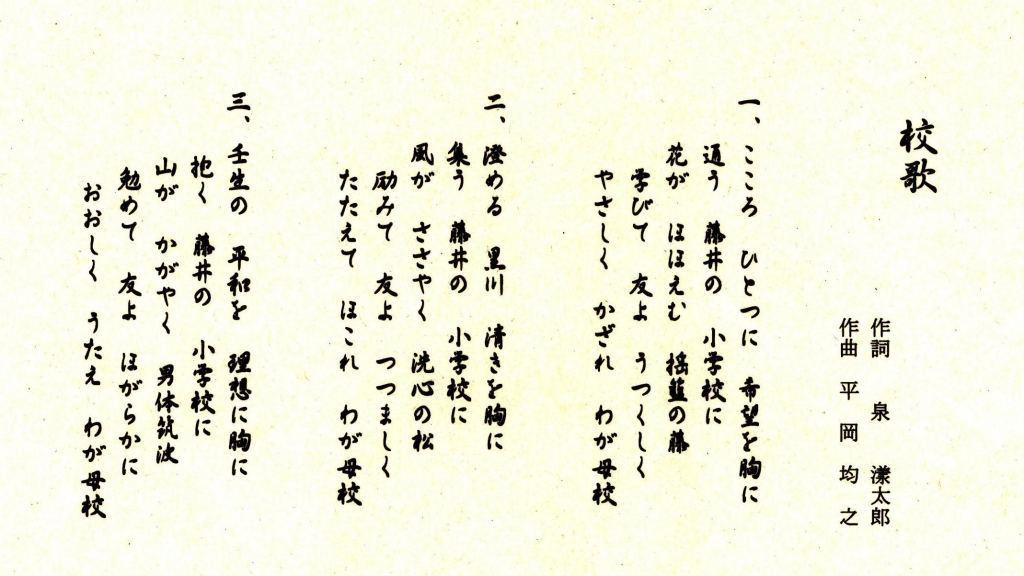 校歌
作詞 泉 漾太郎
作曲 平岡 均之
一、こころ ひとつに 希望を胸に
通う 藤井の 小学校に
花が ほほえむ 揺籃の藤
学びて 友よ うつくしく
やさしく かざれ わが母校
二、澄める 黒川 清きを胸に
集う 藤井の 小学校に
風が ささやく 洗心の松
励みて 友よ つつましく
たたえて ほこれ わが母校
三、壬生の 平和を 理想に胸に
抱く 藤井の 小学校に
山が かがやく 男体筑波
勉めて 友よ ほがらかに
おおしく うたえ わが母校